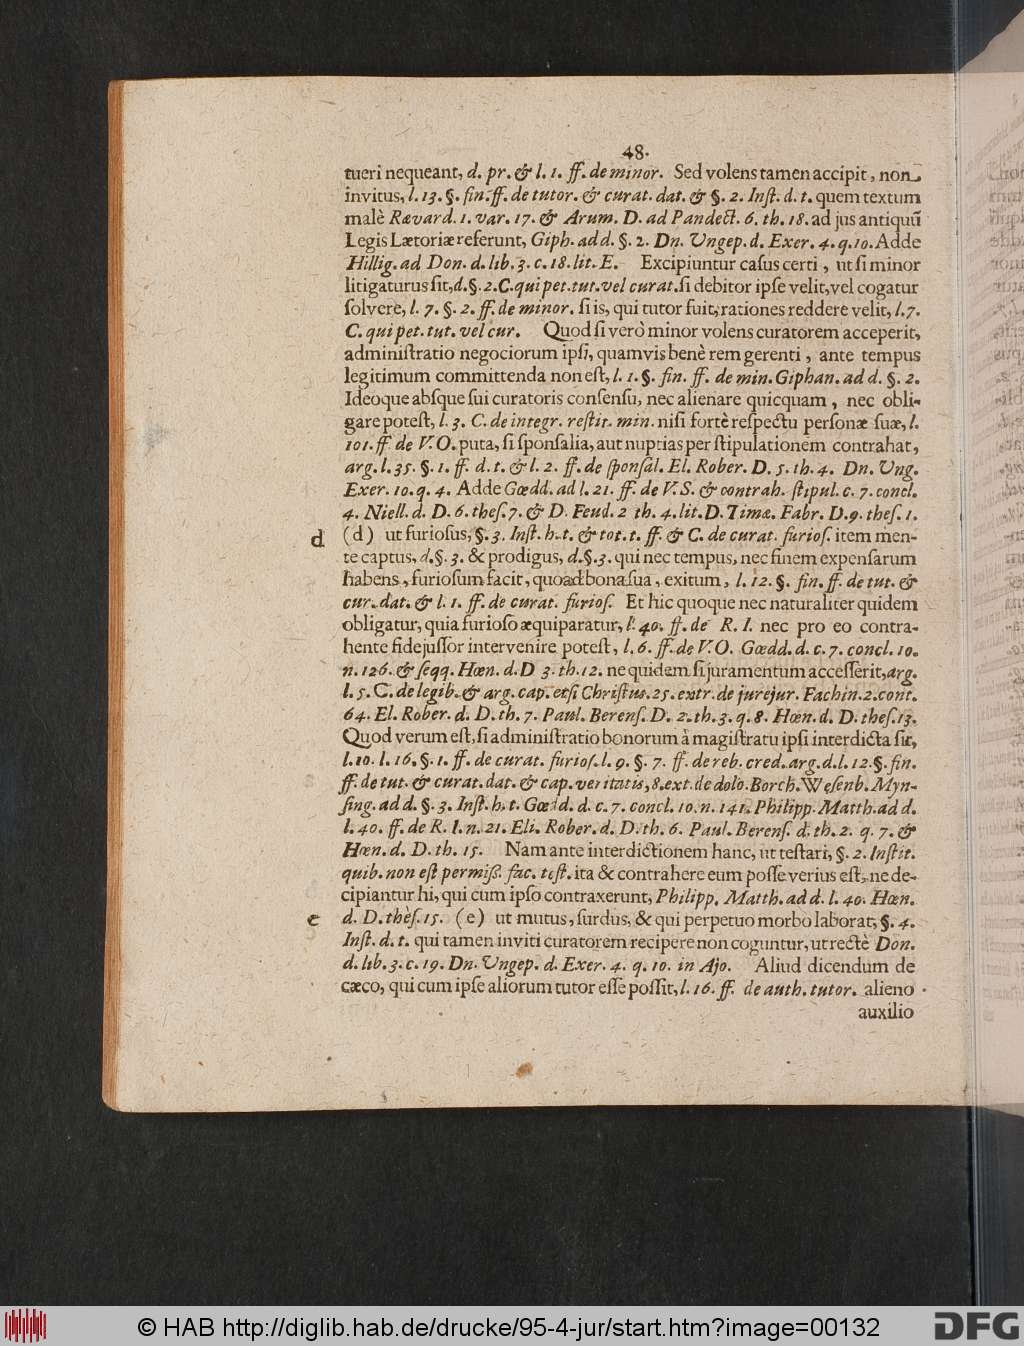 48.
tueri nequeant, d. pr. & l. 1. ff. de minor. Sed volens tamen accipit, non
invitus, l. 13. §. fin. ff. de tutor. & curat. dat. & §. 2. Inst. d. t. quem textum
malè Rævard. 1. var. 17. & Arum. D. ad Pandect. 6. th. 18. ad jus antiquũ
Legis Lætoriæ referunt, Giph. ad d. §. 2. Dn. Ungep. d. Exer. 4. q. 10. Adde
Hillig. ad Don. d. lib. 3. c. 18. lit. E. Excipiuntur casus certi, ut si minor
litigaturus sit, d. §. 2. C. qui pet. tut. vel curat. si debitor ipse velit, vel cogatur
solvere, l. 7. §. 2. ff. de minor. si is, qui tutor fuit, rationes reddere velit, l. 7.
C. qui pet. tut. vel cur. Quod si verò minor volens curatorem acceperit,
administratio negociorum ipsi, quamvis benè rem gerenti, ante tempus
legitimum committenda non est, l. 1. §. fin. ff. de min. Giphan. ad d. §. 2.
Ideoque absque sui curatoris consensu, nec alienare quicquam, nec obli-
gare potest, l. 3. C. de integr. restit. min. nisi fortè respectu personæ suæ, l.
101. ff. de V. O. puta, si sponsalia, aut nuptias per stipulationem contrahat,
arg. l. 35. §. 1. ff. d. t. & l. 2. ff. de sponsal. El. Rober. D. 5. th. 4. Dn. Ung.
Exer. 10. q. 4. Adde Gœdd. ad l. 21. ff. de V. S. & contrah. stipul. c. 7. concl.
4. Niell. d. D. 6. thes. 7. & D. Feud. 2 th. 4. lit. D. Timæ. Fabr. D. 9. thes. 1.
d (d) ut furiosus, §. 3. Inst. h. t. & tot. t. ff. & C. de curat. furios. item men-
te captus, d. §. 3. & prodigus, d. §. 3. qui nec tempus, nec finem expensarum
habens, furiosum facit, quoad bona sua, exitum, l. 12. §. fin. ff. de tut. &
cur. dat. & l. 1. ff. de curat. furios. Et hic quoque nec naturaliter quidem
obligatur, quia furioso æquiparatur, l. 40. ff. de R. I. nec pro eo contra-
hente fidejussor intervenire potest, l. 6. ff. de V. O. Gœdd. d. c. 7. concl. 10.
n. 126. & seqq. Hœn. d. D 3. th. 12. ne quidem si juramentum accesserit, arg.
l. 5. C. de legib. & arg. cap. etsi Christus. 25. extr. de jurejur. Fachin. 2. cont.
64. El. Rober. d. D. th. 7. Paul. Berens. D. 2. th. 3. q. 8. Hœn. d. D. thes. 13.
Quod verum est, si administratio bonorum à magistratu ipsi interdicta sit,
l. 10. l. 16. §. 1. ff. de curat. furios. l. 9. §. 7. ff. de reb. cred. arg. d. l. 12. §. fin.
ff. de tut. & curat. dat. & cap. veritatis, 8. ext. de dolo. Borch. Wesenb. Myn-
sing. ad d. §. 3. Inst. h. t. Gœdd. d. c. 7. concl. 10. n. 141. Philipp. Matth. ad d.
l. 40. ff. de R. I. n. 21. Eli. Rober. d. D. th. 6. Paul. Berens. d. th. 2. q. 7. &
Hœn. d. D. th. 15. Nam ante interdictionem hanc, ut testari, §. 2. Instit.
quib. non est permiss. fac. test. ita & contrahere eum posse verius est, ne de-
cipiantur hi, qui cum ipso contraxerunt, Philipp. Matth. ad d. l. 40. Hœn.
e d. D. thès. 15. (e) ut mutus, surdus, & qui perpetuo morbo laborat, §. 4.
Inst. d. t. qui tamen inviti curatorem recipere non coguntur, ut rectè Don.
d. lib. 3. c. 19. Dn. Ungep. d. Exer. 4. q. 10. in Ajo. Aliud dicendum de
cæco, qui cum ipse aliorum tutor esse possit, l. 16. ff. de auth. tutor. alieno
auxilio
© HAB http://diglib.hab.de/drucke/95-4-jur/start.htm?image=00132
DFG